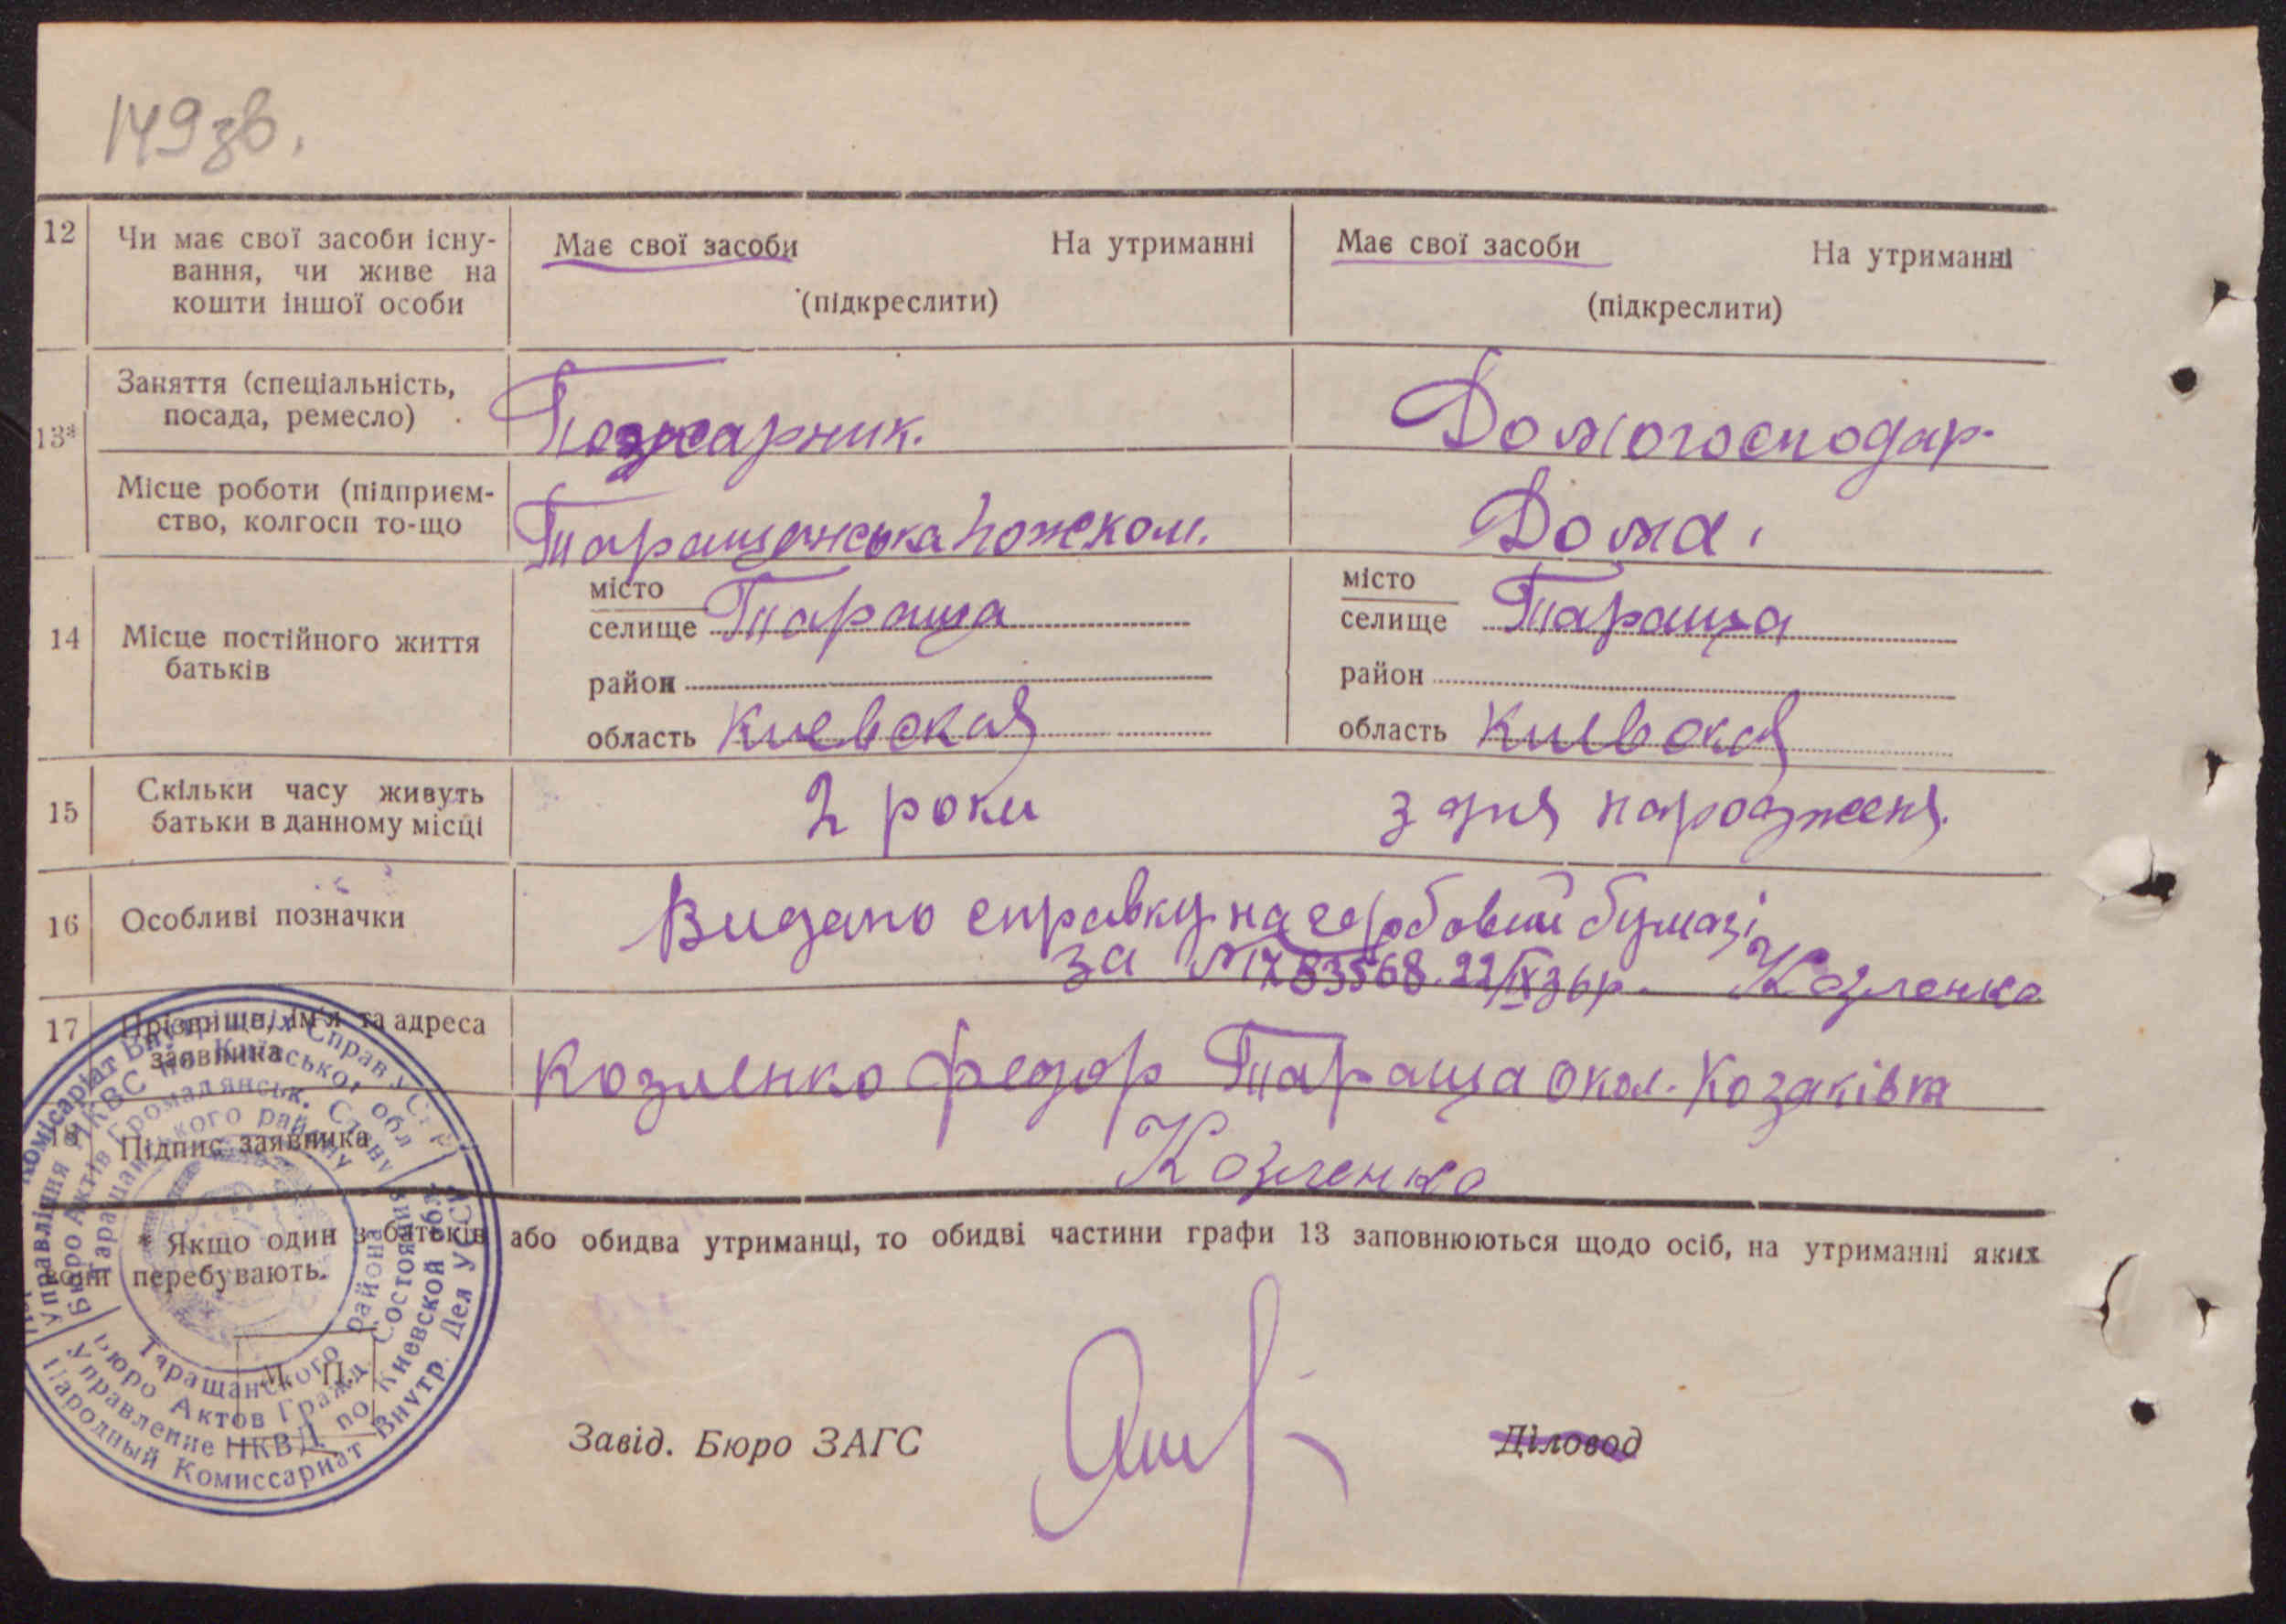 149зв.
12 Чи має свої засоби існу-
вання, чи живе на
кошти іншої особи
Має свої засоби На утриманні
(підкреслити)
Має свої засоби На утриманні
(підкреслити)
13*
Заняття (спеціальність,
посада, ремесло)
Пожарник.
Домогосподар.
Місце роботи (підприєм-
ство, колгосп то-що
Таращанська пожком.
Дома.
14 Місце постійного життя
батьків
місто
селище Тараща
район
область Киевская
місто
селище Тараща
район
область Киевская
15 Скільки часу живуть
батьки в данному місці
2 роки
з дня народженя.
16 Особливі позначки
Видано справку на гербовий бумазі
за № 783568. 22/IX 36р. Козленко
17 Прізвище, ім'я та адреса
заявника
Козленко Федор Тараща окол. Козаківка
18 Підпис заявника
Козленко
* Якщо один з батьків або обидва утриманці, то обидві частини графи 13 заповнюються щодо осіб, на утриманні яких
вони перебувають.
М. П.
Завід. Бюро ЗАГС
Діловод
Таращанского района
Бюро Актов Гражд. Состояния
Управление НКВД по Киевской обл.
Народный Комиссариат Внутр. Дел УССР